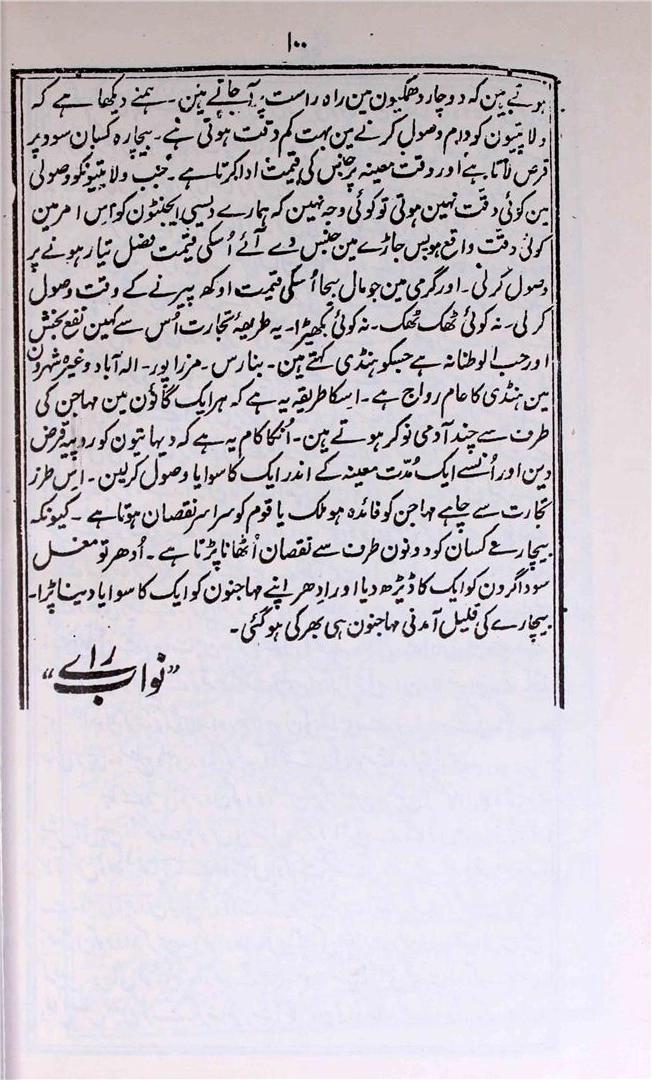 ۱۰۰
ہوتے ہین کہ دو چار دھمکیون مین راہ راست پر آ جاتے ہین۔ ہمنے دیکھا ہے کہ
ولایتیون کو دام وصول کرنے مین بہت کم دقت ہوتی ہے۔ بیچارہ کسان سود پر
قرض لاتا ہے اور وقت معینہ پر جنس کی قیمت ادا کرتا ہے۔ جب ولایتیونکو وصولی
مین کوئی دقت نہین ہوتی تو کوئی وجہ نہین کہ ہمارے دیسی ایجنٹون کو اس امر مین
کوئی دقت واقع ہو بس جاڑے مین جنس دے آئے اُسکی قیمت فصل تیار ہونے پر
وصول کرلی۔ اور گرمی مین جو مال بیچا اُسکی قیمت اوکھ پیرنے کے وقت وصول
کرلی۔ نہ کوئی ٹھک ٹھک۔ نہ کوئی بکھیڑا۔ یہ طریقۂ تجارت اُس سے کہین نفع بخش
اور حب الوطنانہ ہے جسکو ہنڈی کہتے ہین۔ بنارس۔ مرزاپور۔ الہ آباد وغیرہ شہرون
مین ہنڈی کا عام رواج ہے۔ اسکا طریقہ یہ ہے کہ ہر ایک گاؤن مین مہاجن کی
طرف سے چند آدمی نوکر ہوتے ہین۔ اُنکا کام یہ ہے کہ دیہاتیون کو روپیہ قرض
دین اور اُنسے ایک مُدّت معینہ کے اندر ایک کا سوایا وصول کرلین۔ اس طرز
تجارت سے چاہے مہاجن کو فائدہ ہو ملک یا قوم کو سراسر نقصان ہوتا ہے۔ کیونکہ
بیچارے کسان کو دونون طرف سے نقصان اُٹھانا پڑتا ہے۔ اُدھر تو مغل
سوداگرون کو ایک کا ڈیڑھ دیا اور ادھر اپنے مہاجنون کو ایک کا سوایا دینا پڑا۔
بیچارے کی قلیل آمدنی مہاجنون ہی بھر کی ہو گئی۔
”نواب رائے“